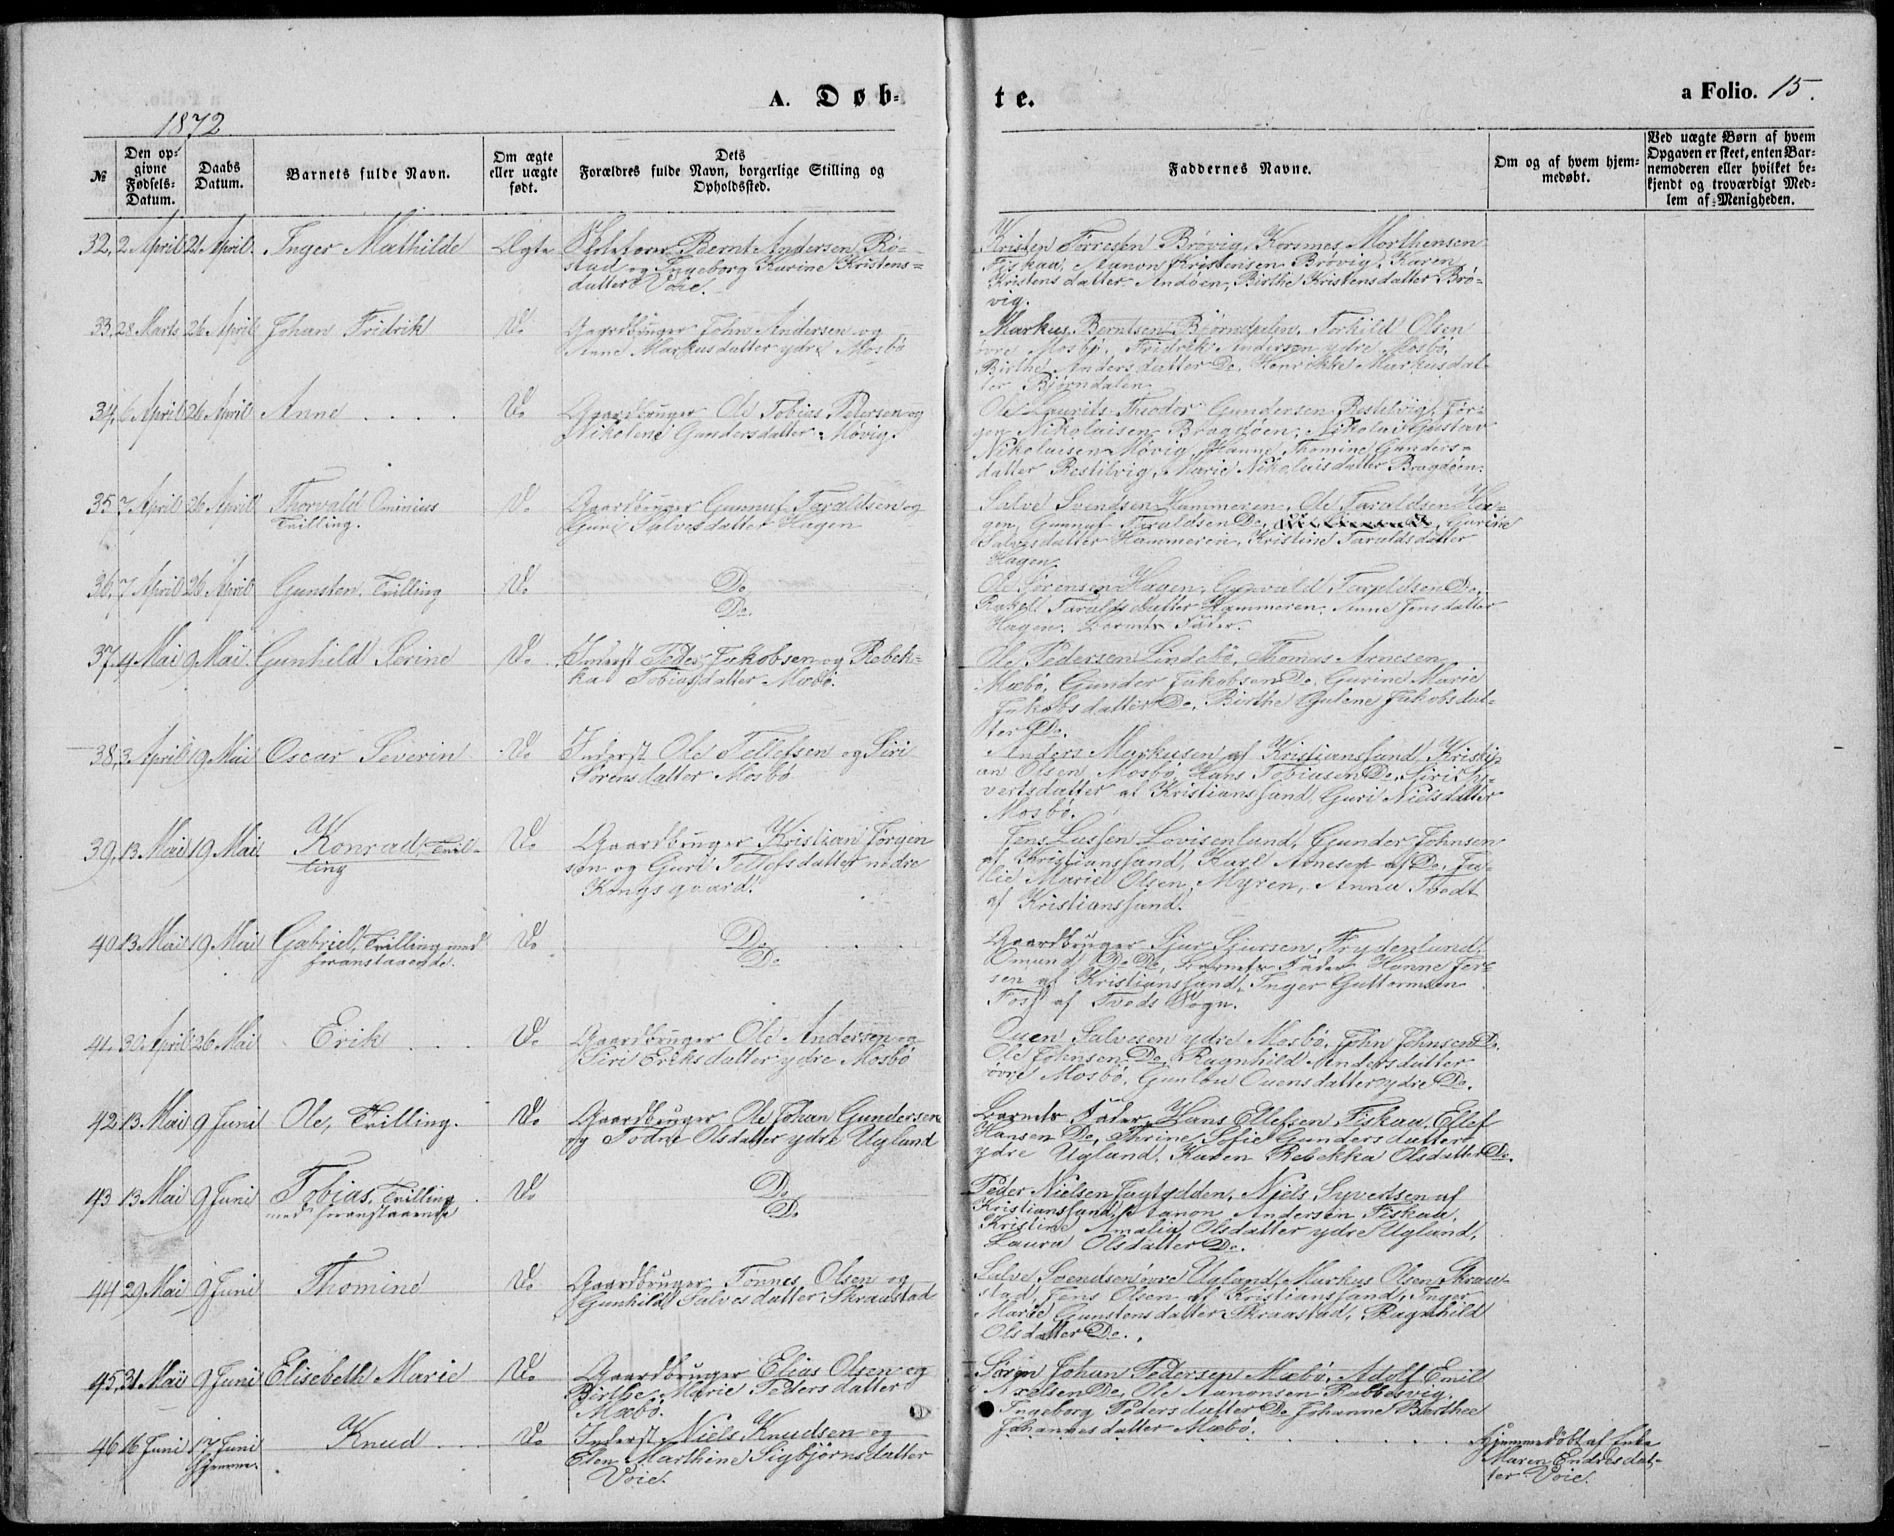 A. Døb-
te.
a Folio. 15.
1872
№
Den op-
givne
Fødsels-
Datum.
Daabs
Datum.
Barnets fulde Navn.
Om ægte
eller uægte
født.
Dets
Forældres fulde Navn, borgerlige Stilling og
Opholdssted.
Faddernes Navne.
Om og af hvem hjem-
medøbt.
Ved uægte Børn af hvem
Opgaven er skeet, enten Bar-
nemoderen eller hvilket be-
kjendt og troværdigt Med-
lem af Menigheden.
32, 2 April 21 April. Inger Mathilde Ægte Bernt Andersen Rø-
stad og Ingeborg Karine Kristens-
datter Voie.
Kristen Brøvig, Morthensen
Fiskaa, Aanon Kristensen Brøvig, Karen
Kristensdatter Andøen, Birthe Kristensdatter Brø-
vig.
33, 28 Marts 26 April Johan Fridrik Do Gaardbruger John Andersen og
Anne Markusdatter ydre Mosbø
Markus Berntsen Bjørndalen, Torkild Olsen
øvre Mosbø, Fridrik Andersen ydre Mosbø,
Birthe Andersdatter Do, Henrikke Markusdat-
ter Bjørndalen
34, 6 April 26 April Anne Do Gaardbruger Ole Tobias Petersen og
Nikolene Gundersdatter Møvig.
Ole Laurits Theodor Gundersen Restilvig, Jør-
gen Nikolaisen Bragdøen, Nikolai Gustav
Nikolaisen Møvig, Hanne Thomine Gunders-
datter Restilvig, Marie Nikolaisdatter Bragdøen.
35, 7 April 26 April Thorvald Ominius Do Gaardbruger Gunnuf Taraldsen og
Tvilling. Guri Salvesdatter Hagen
Salve Svendsen Hammeren, Ole Taraldsen Ha-
gen, Gunnuf Taraldsen Do, Gurine
Salvesdatter Hammeren, Kristine Taraldsdatter
Hagen.
36, 7 April 26 April Gunsten, Tvilling Do Do
Do
Ole Sørensen Hagen, Taraldsen Do,
Rakel Taraldsdatter Hammeren, Anne Jensdatter
Hagen. Barnets Fader.
37, 4 Mai 9 Mai. Gunhild Serine Do Inderst Peder Jakobsen og Rebek-
ka Tobiasdatter Mæbø.
Ole Pedersen Lindebø, Thomas Arnesen
Mæbø, Gunder Jakobsen Do, Gurine Marie
Jakobsdatter Do, Birthe Gulene Jakobsdat-
ter Do.
38, 3 April 19 Mai Oscar Severin Do Inderst Ole Tellefsen og Siri
Sørensdatter Mosbø
Anders Markusen af Kristianssand, Kristi-
an Olsen Mosbø, Hans Tobiasen Do, Siri Sy-
vertsdatter af Kristianssand, Guri Nielsdatter
Mosbø.
39, 13 Mai 19 Mai Konrad, Tvil- Do Gaardbruger Kristian Jørgen
ling sen og Guri Tellefsdatter nedre
Kongsgaard.
Jens Lassen Lovisenlund, Gunder Johnsen
af Kristianssand, Karl Arnesen af Do, Ju-
lie Marie Olsen Myren, Anna Tvedt
af Kristianssand.
40 13 Mai 19 Mai Gabriel, Tvilling med Do Do
foranstaaende. Do
Gaardbruger Sjur Sjursen Frydenlund,
Omund Do Do, Barnets Fader, Hanne Jer-
sen af Kristianssand, Inger Guttormsen
Foss af Tveds Sogn.
41, 30 April 26 Mai Erik Do Gaardbruger Ole Andersen og
Siri Eriksdatter ydre Mosbø
Ouen Salvesen ydre Mosbø, John Johnsen Do.
Ole Johnsen Do, Ragnhild Andersdatter
øvre Mosbø, Gunlau Ouensdatter ydre Do.
42, 13 Mai 9 Juni Ole, Tvilling. Do Gaardbruger Ole Johan Gundersen
og Todne Olsdatter ydre Ugland
Barnets Fader, Hans Ellefsen Fiskaa, Ellef
Hansen Do, Thrine Sofie Gundersdatter
ydre Ugland, Karen Rebekka Olsdatter Do.
43 13 Mai 9 Juni Tobias, Tvilling Do Do
med foranstaaende Do
Peder Nielsen Jagtodden, Niels Syvertsen af
Kristianssand, Aanon Andersen Fiskaa,
Kristine Amalia Olsdatter ydre Ugland,
Laura Olsdatter Do.
44 29 Mai 9 Juni Thomine Do Gaardbruger Tønnes Olsen og
Gunhild Salvesdatter Skraastad
Salve Svendsen øvre Ugland, Markus Olsen Skraa-
stad, Jens Olsen af Kristianssand, Inger
Marie Gunstensdatter Skraastad, Ragnhild
Olsdatter Do.
45, 31 Mai 9 Juni Elisebeth Marie Do Gaardbruger Elias Olsen og
Birthe Marie Pedersdatter
Mæbø.
Søren Johan Pedersen Mæbø, Adolf Emil
Axelsen Do, Ole Aanonsen Rabbesvig,
Ingeborg Pedersdatter Do, Johanne Berthee
Johannesdatter Mæbø.
46 16 Juni 17 Juni Knud Do Inderst Niels Knudsen og
hjemme. Elen Marthine Sigbjørnsdatter
Voie.
Hjemmedøbt af Enke
Maren Endresdat-
ter Voie.